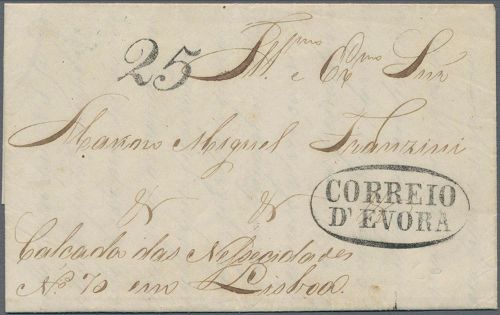 25 Illmo e Exmo Snr
Marino Miguel Franzini
& &
CORREIO
D'EVORA
Calcada das Nessecidades
No 70 em Lisboa.